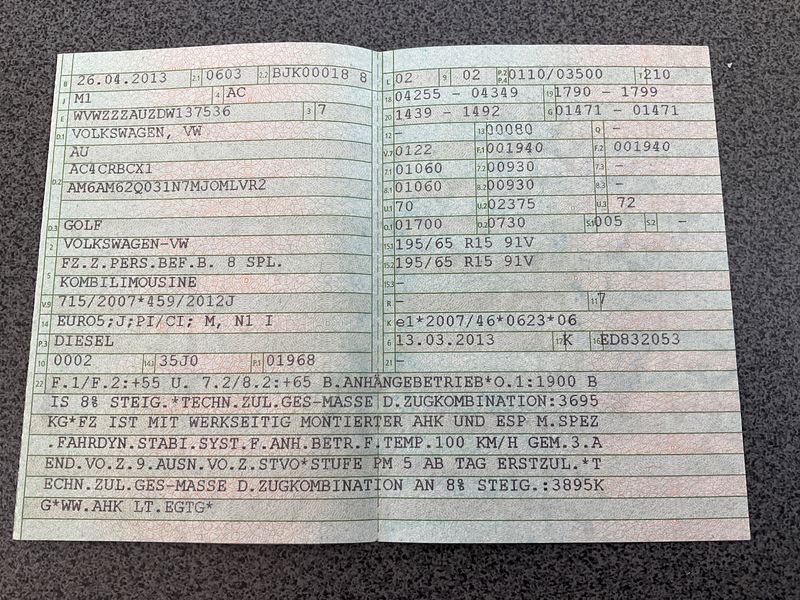 B 26.04.2013 2.1 0603 2.2 BJK00018 8
J M1 4 AC
E WVWZZZAUZDW137536 3 7
D.1 VOLKSWAGEN, VW
AU
D.2 AC4CRBCX1
AM6AM62Q031N7MJOMLVR2
D.3 GOLF
2 VOLKSWAGEN-VW
5 FZ.Z.PERS.BEF.B. 8 SPL.
KOMBILIMOUSINE
V.9 715/2007*459/2012J
14 EURO5;J;PI/CI; M, N1 I
P.3 DIESEL
10 0002 14.1 35J0 P.1 01968
L 02 9 02 P.2 P.4 0110/03500 T 210
18 04255 - 04349 19 1790 - 1799
20 1439 - 1492 G 01471 - 01471
12 - 13 00080 Q -
V.7 0122 F.1 001940 F.2 001940
7.1 01060 7.2 00930 7.3 -
8.1 01060 8.2 00930 8.3 -
U.1 70 U.2 02375 U.3 72
O.1 01700 O.2 0730 S.1 005 S.2 -
15.1 195/65 R15 91V
15.2 195/65 R15 91V
15.3 -
R - 11 7
K e1*2007/46*0623*06
6 13.03.2013 17 K 16 ED832053
21 -
22 F.1/F.2:+55 U. 7.2/8.2:+65 B.ANHÄNGEBETRIEB*O.1:1900 B
IS 8% STEIG.*TECHN.ZUL.GES-MASSE D.ZUGKOMBINATION:3695
KG*FZ IST MIT WERKSEITIG MONTIERTER AHK UND ESP M.SPEZ
.FAHRDYN.STABI.SYST.F.ANH.BETR.F.TEMP.100 KM/H GEM.3.A
END.VO.Z.9.AUSN.VO.Z.STVO*STUFE PM 5 AB TAG ERSTZUL.*T
ECHN.ZUL.GES-MASSE D.ZUGKOMBINATION AN 8% STEIG.:3895K
G*WW.AHK LT.EGTG*